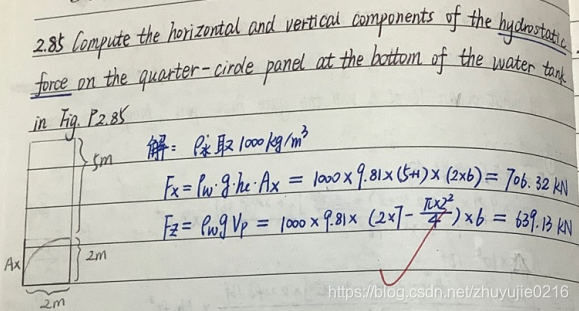 2.85 Compute the horizontal and vertical components of the hydrostatic
force on the quarter-circle panel at the bottom of the water tank
in Fig. P2.85
解: ρ水取 1000kg/m³
5m
Fx = ρw·g·hc·Ax = 1000×9.81×(5+1)×(2×6) = 706.32 kN
Fz = ρwgVp = 1000×9.81×(2×7-π×2²/4)×6 = 639.13 kN
Ax
2m
2m
https://blog.csdn.net/zhuyujie0216